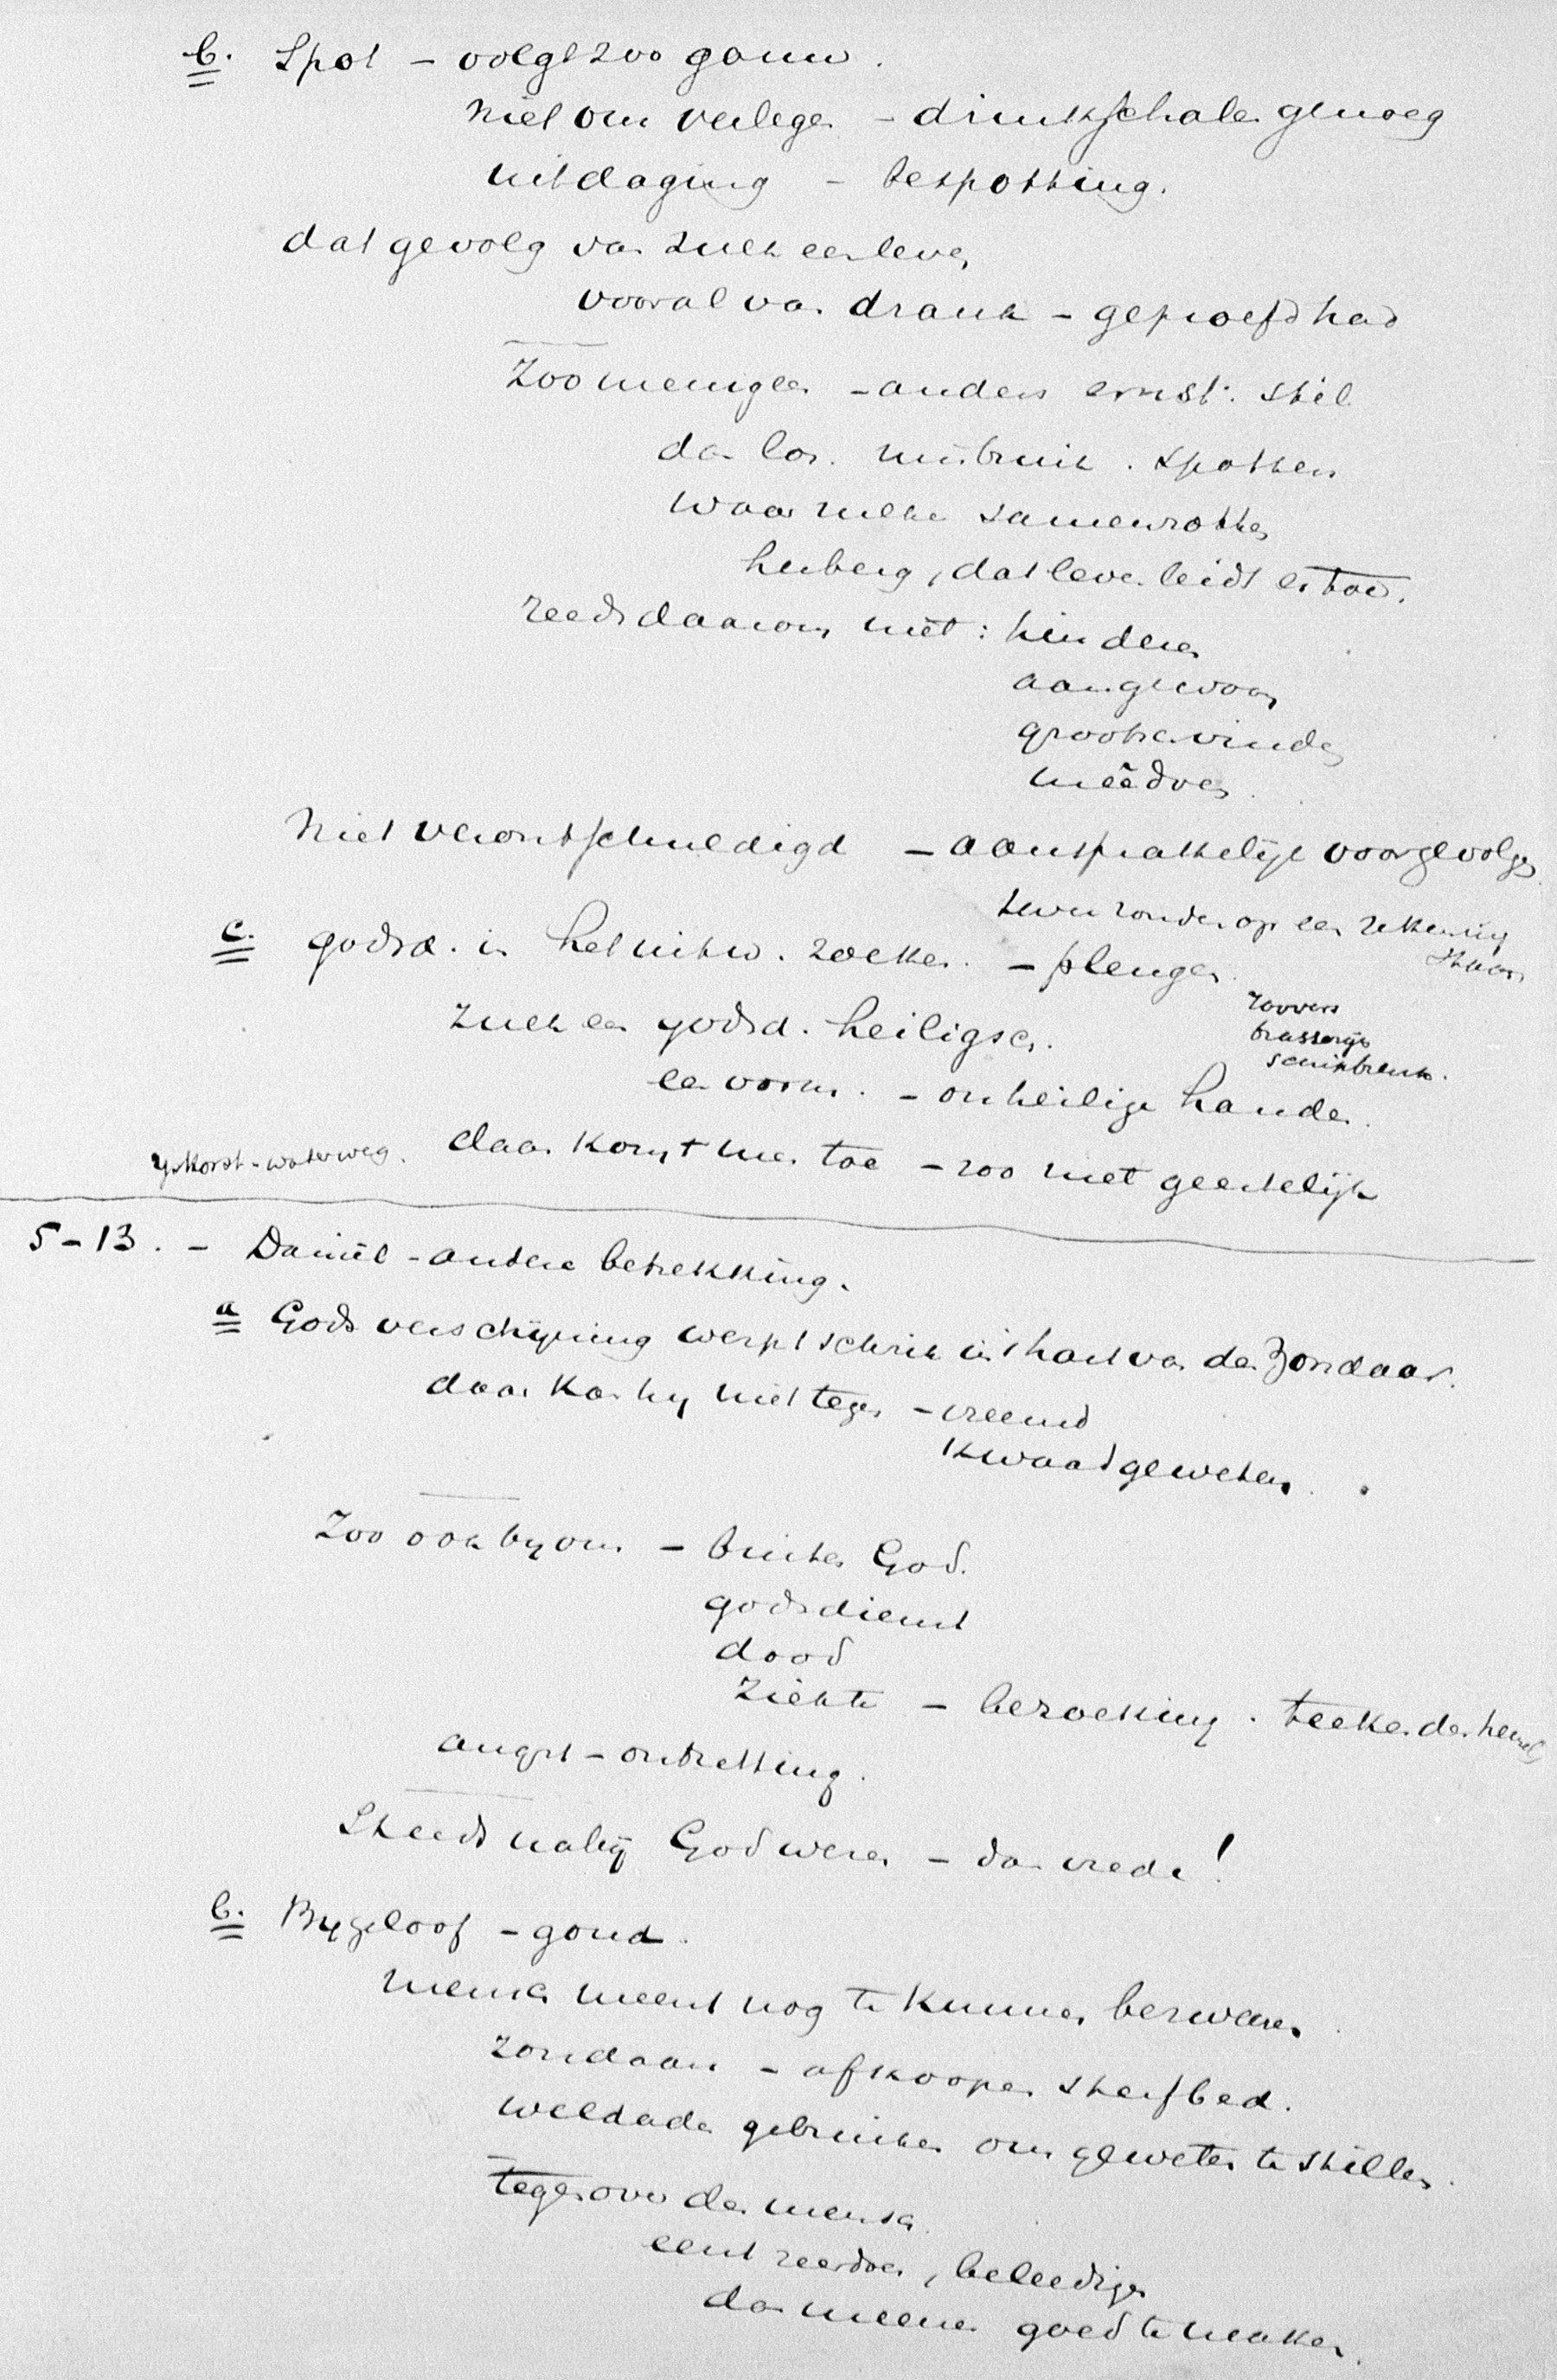 b. Spot – volgt zoo gauw.
niet om verlegen – drinkschalen genoeg
uitdaging – bespotting.
dat gevolg van zulk een leven
vooral van drank – geproefd had
Zoo menigeen – anders ernst. stil
dan los. misbruik. spotten
waar zulken samenrotten
herberg, dat leven leidt er toe.
reeds daarom niet: hinderen
aangewoon
grootsch vinden
meêdoen.
Niet verontschuldigd – aansprakkelijk voor gevolgen
zonden op een rekening
c. godsd. in het uitw. zoeken. – plengen.
roovers
brasserijen
schipbreuk.
zulk een godsd. heiligsch.
een vorm. – onheilige handen.
daar komt men toe – zoo niet geestelijk
waterweg.
5-13. – Daniël – andere betrekking.
a Gods verschijning werpt schrik in 't hart van den Zondaar.
daar kan hij niet tegen – vreemd
kwaad geweten.
Zoo ook bij ons – buiten God.
godsdienst
dood
ziekte – bezoeking. teeken des hemels
angst – ontzetting.
Steeds nabij God wezen – dan vrede!
b. Bijgeloof – goud.
mensch meent nog te kunnen bezweren.
zondaar – afkoopen sterfbed.
weldaden gebruiken om geweten te stillen.
tegenover den mensch.
eerst zeerdoen, beleedigen
dan meenen goed te maken.